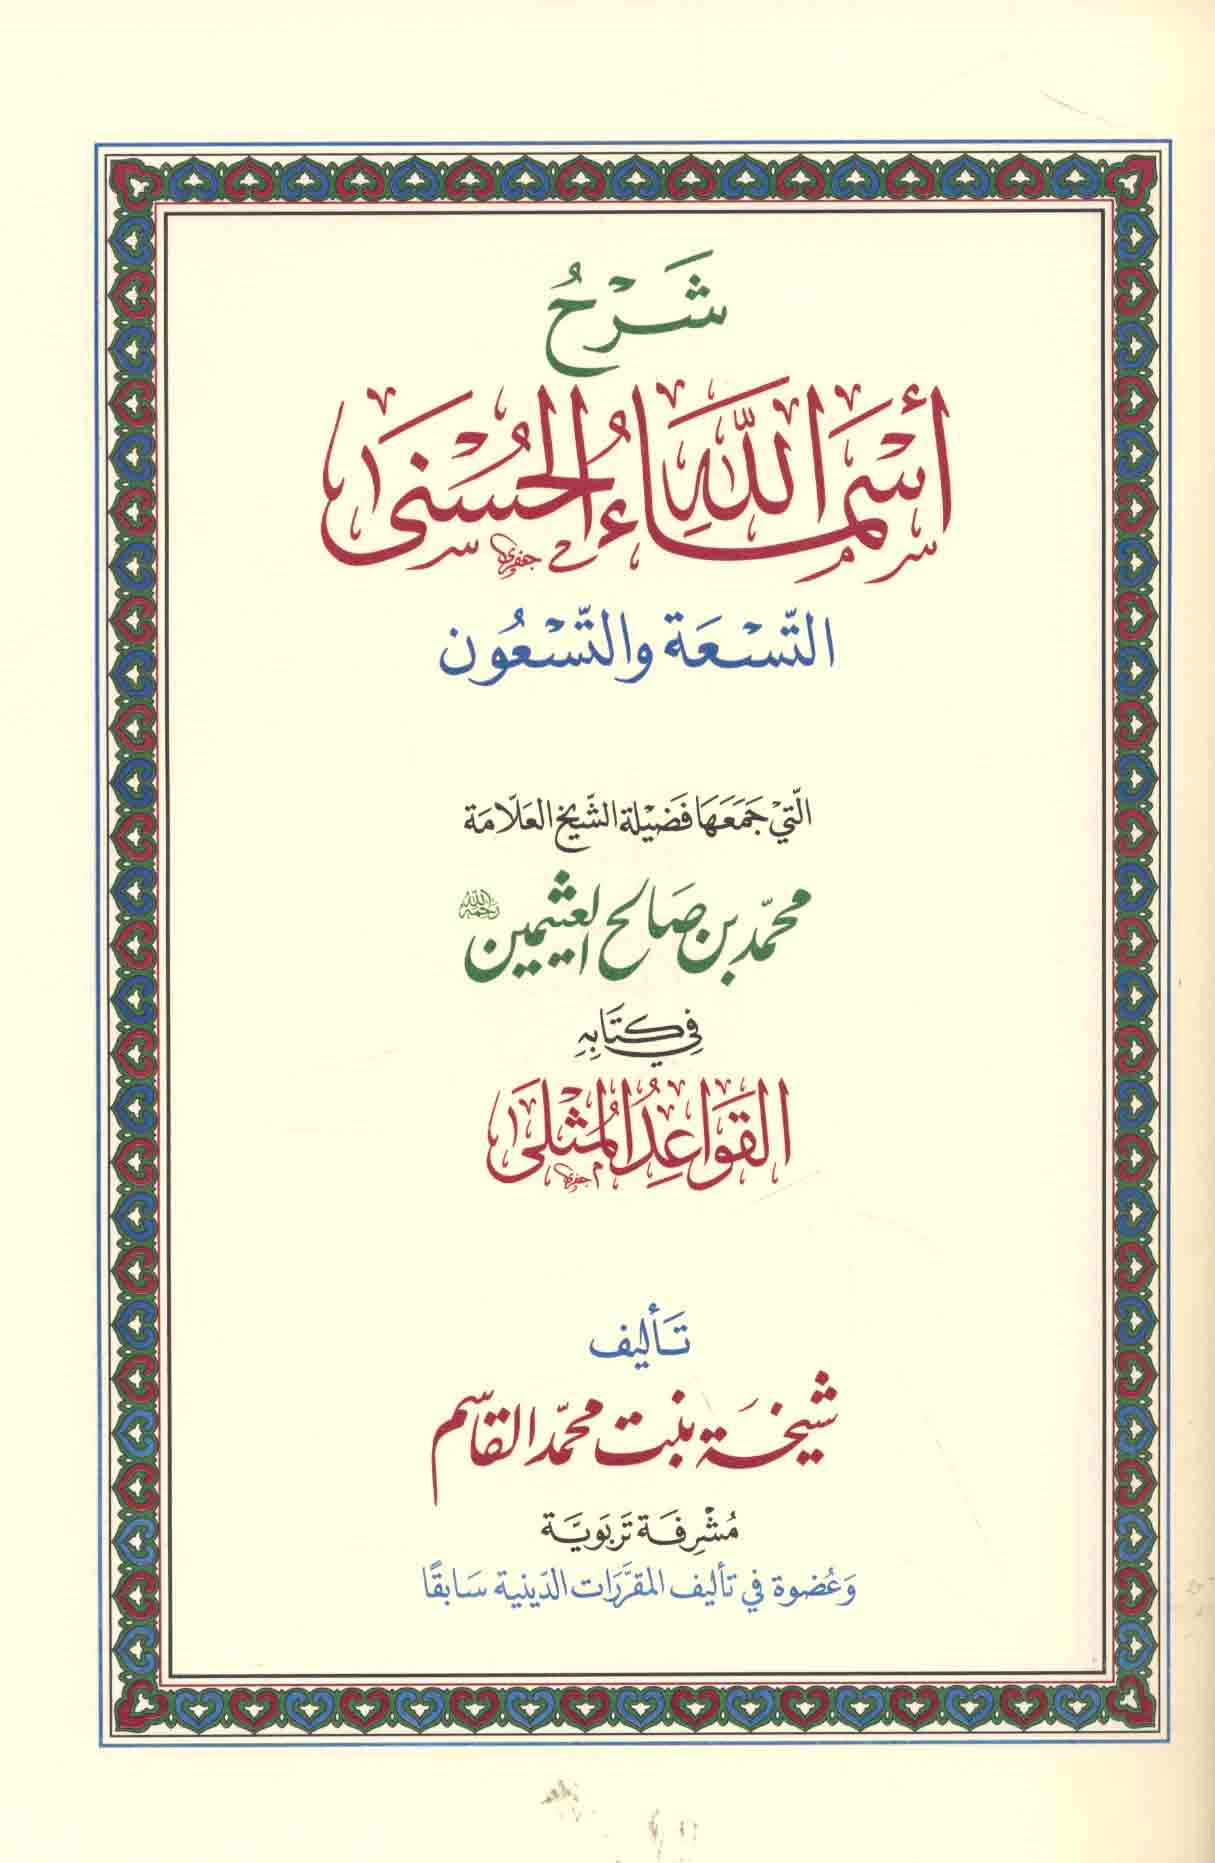 شَرْحُ
أَسْمَاءُ اللَّهِ الْحُسْنَى
التِّسْعَة والتِّسْعُون
الّتيْ جَمَعَهَا فَضِيْلة الشَّيخ العَلّامَة
محمّد بن صَالح العثيمين رَحِمَهُ اللَّه
في كتَابِهِ
القَوَاعِدُ المُثْلَى
تَأليف
شيخَة بنت محمّد القاسم
مُشْرِفَة تَربَويَّة
وَعُضوة في تأليف المقَرَّرَات الدّينية سَابقًا